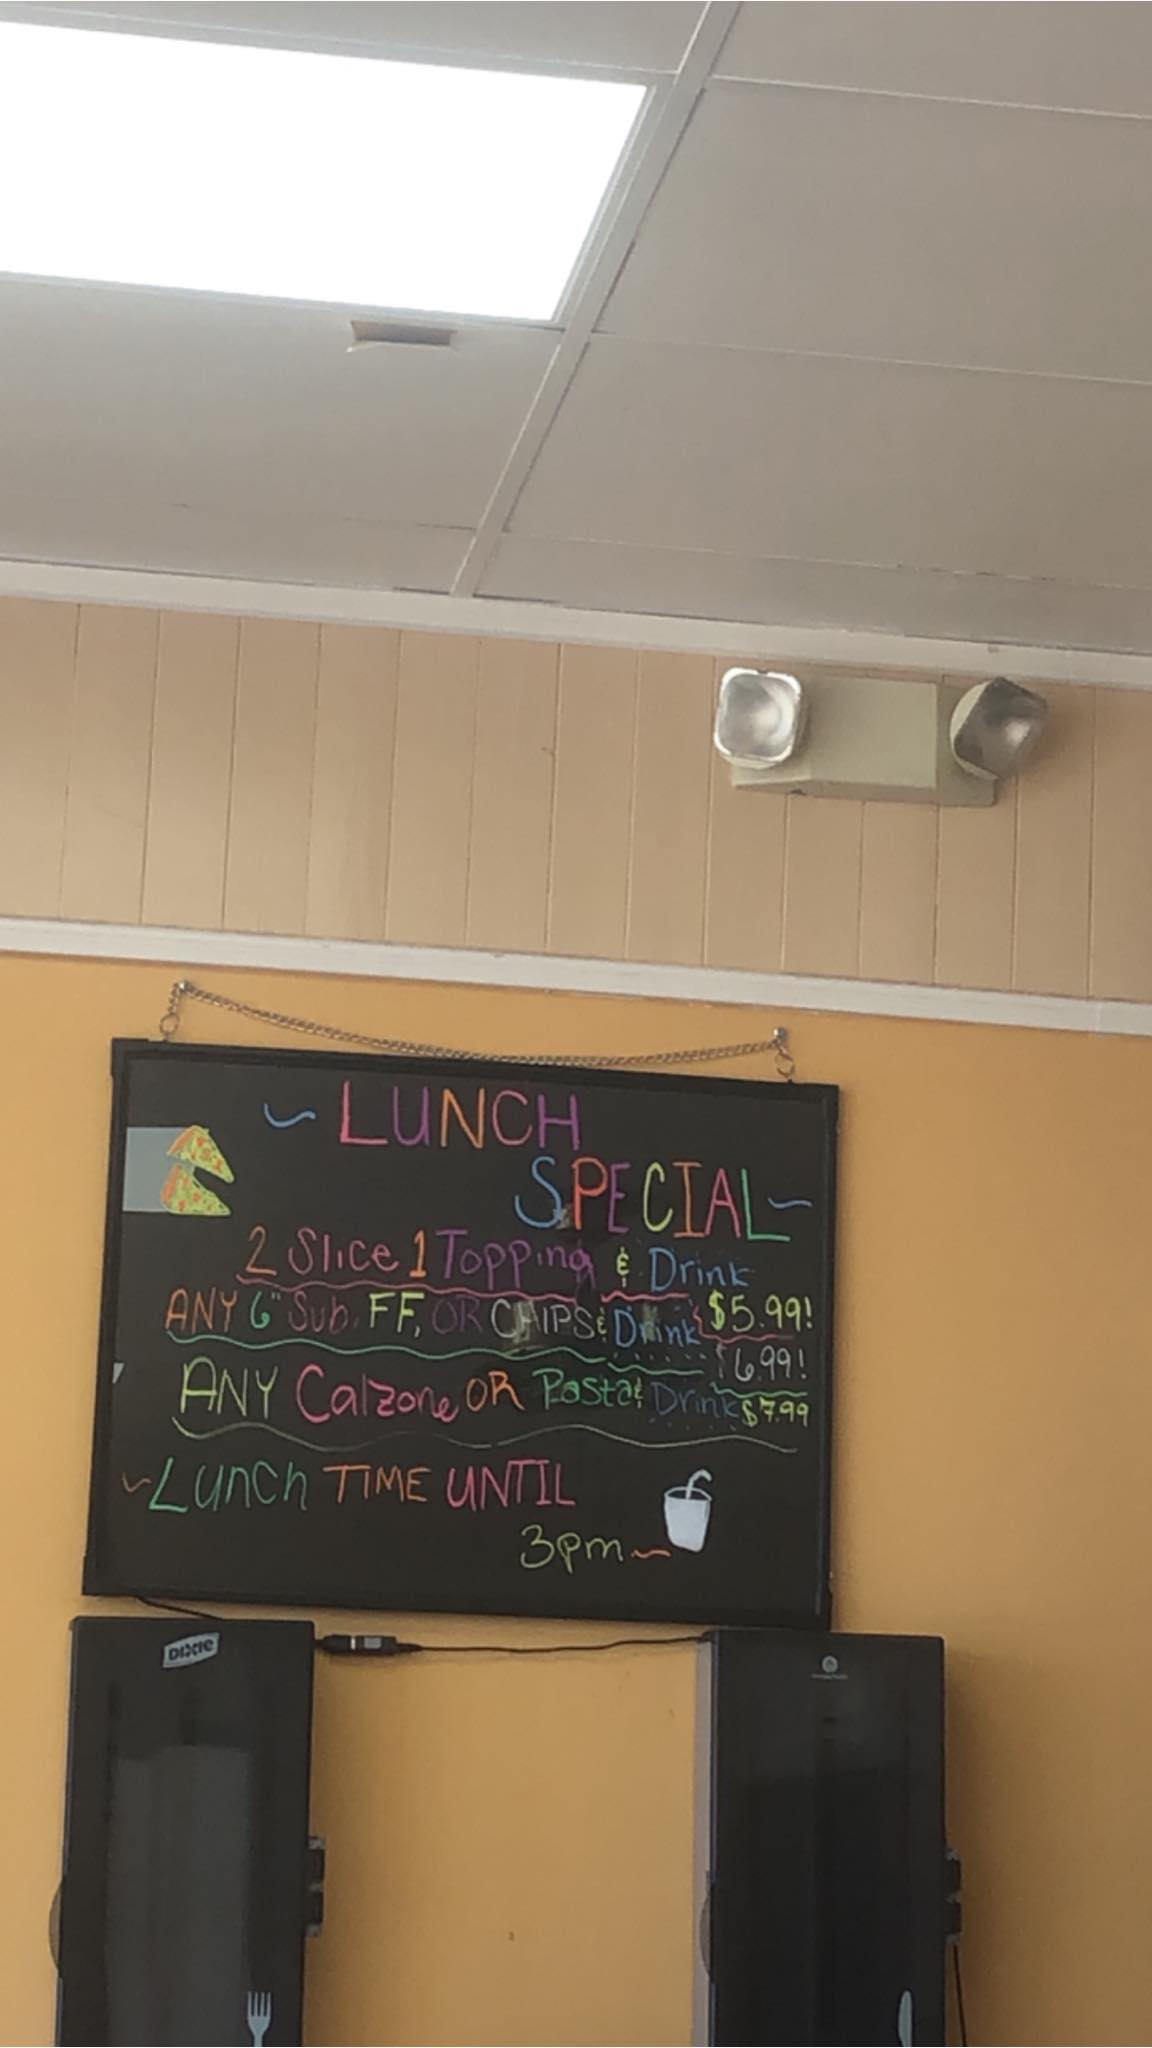 ~ LUNCH
SPECIAL ~
2 Slice 1 Topping & Drink
$5.99!
ANY 6" Sub, FF, OR CHIPS & Drink
$6.99!
ANY Calzone OR Pasta & Drink $7.99
~ Lunch TIME UNTIL
3pm ~
DIXIE